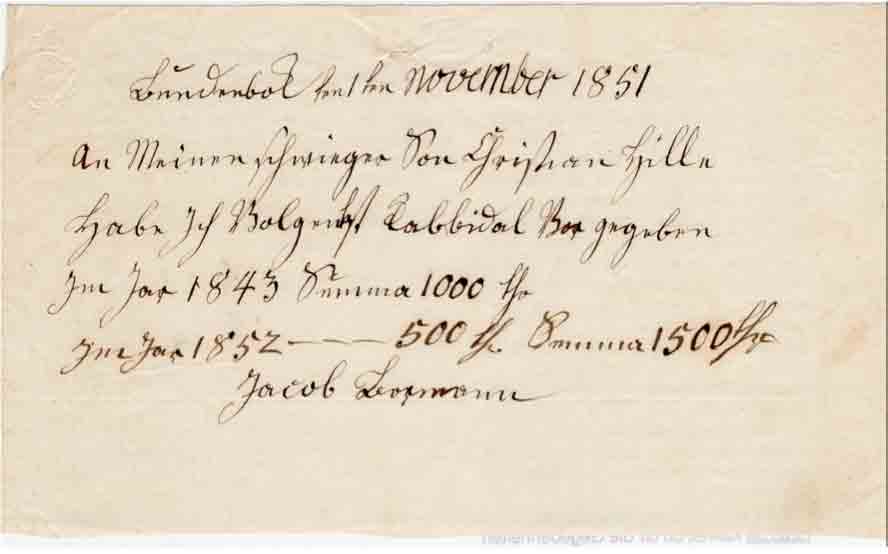 Bundenbok den 1ten November 1851
An Meinen schwieger Son Christian Hille
Habe Ich Volgendst Kabbidal Vor gegeben
Im Jar 1843 Summa 1000 thr
Im Jar 1852 — — — 500 th. Summa 1500 thr
Jacob Bormann